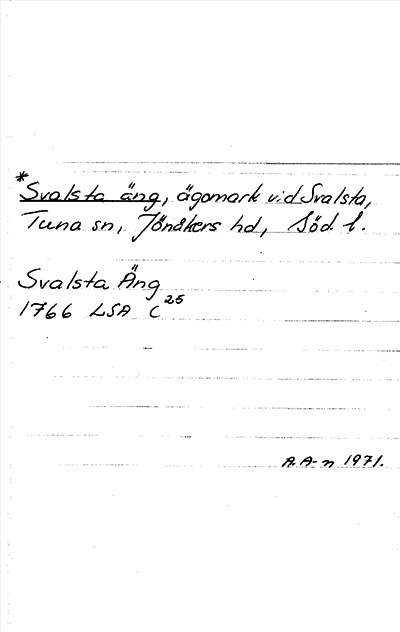 *Svalsta äng, ägomark vid Svalsta,
Tuna sn, Jönåkers hd, Söd. l.
Svalsta Äng
1766 LSA C 25
A.A-n 1971.